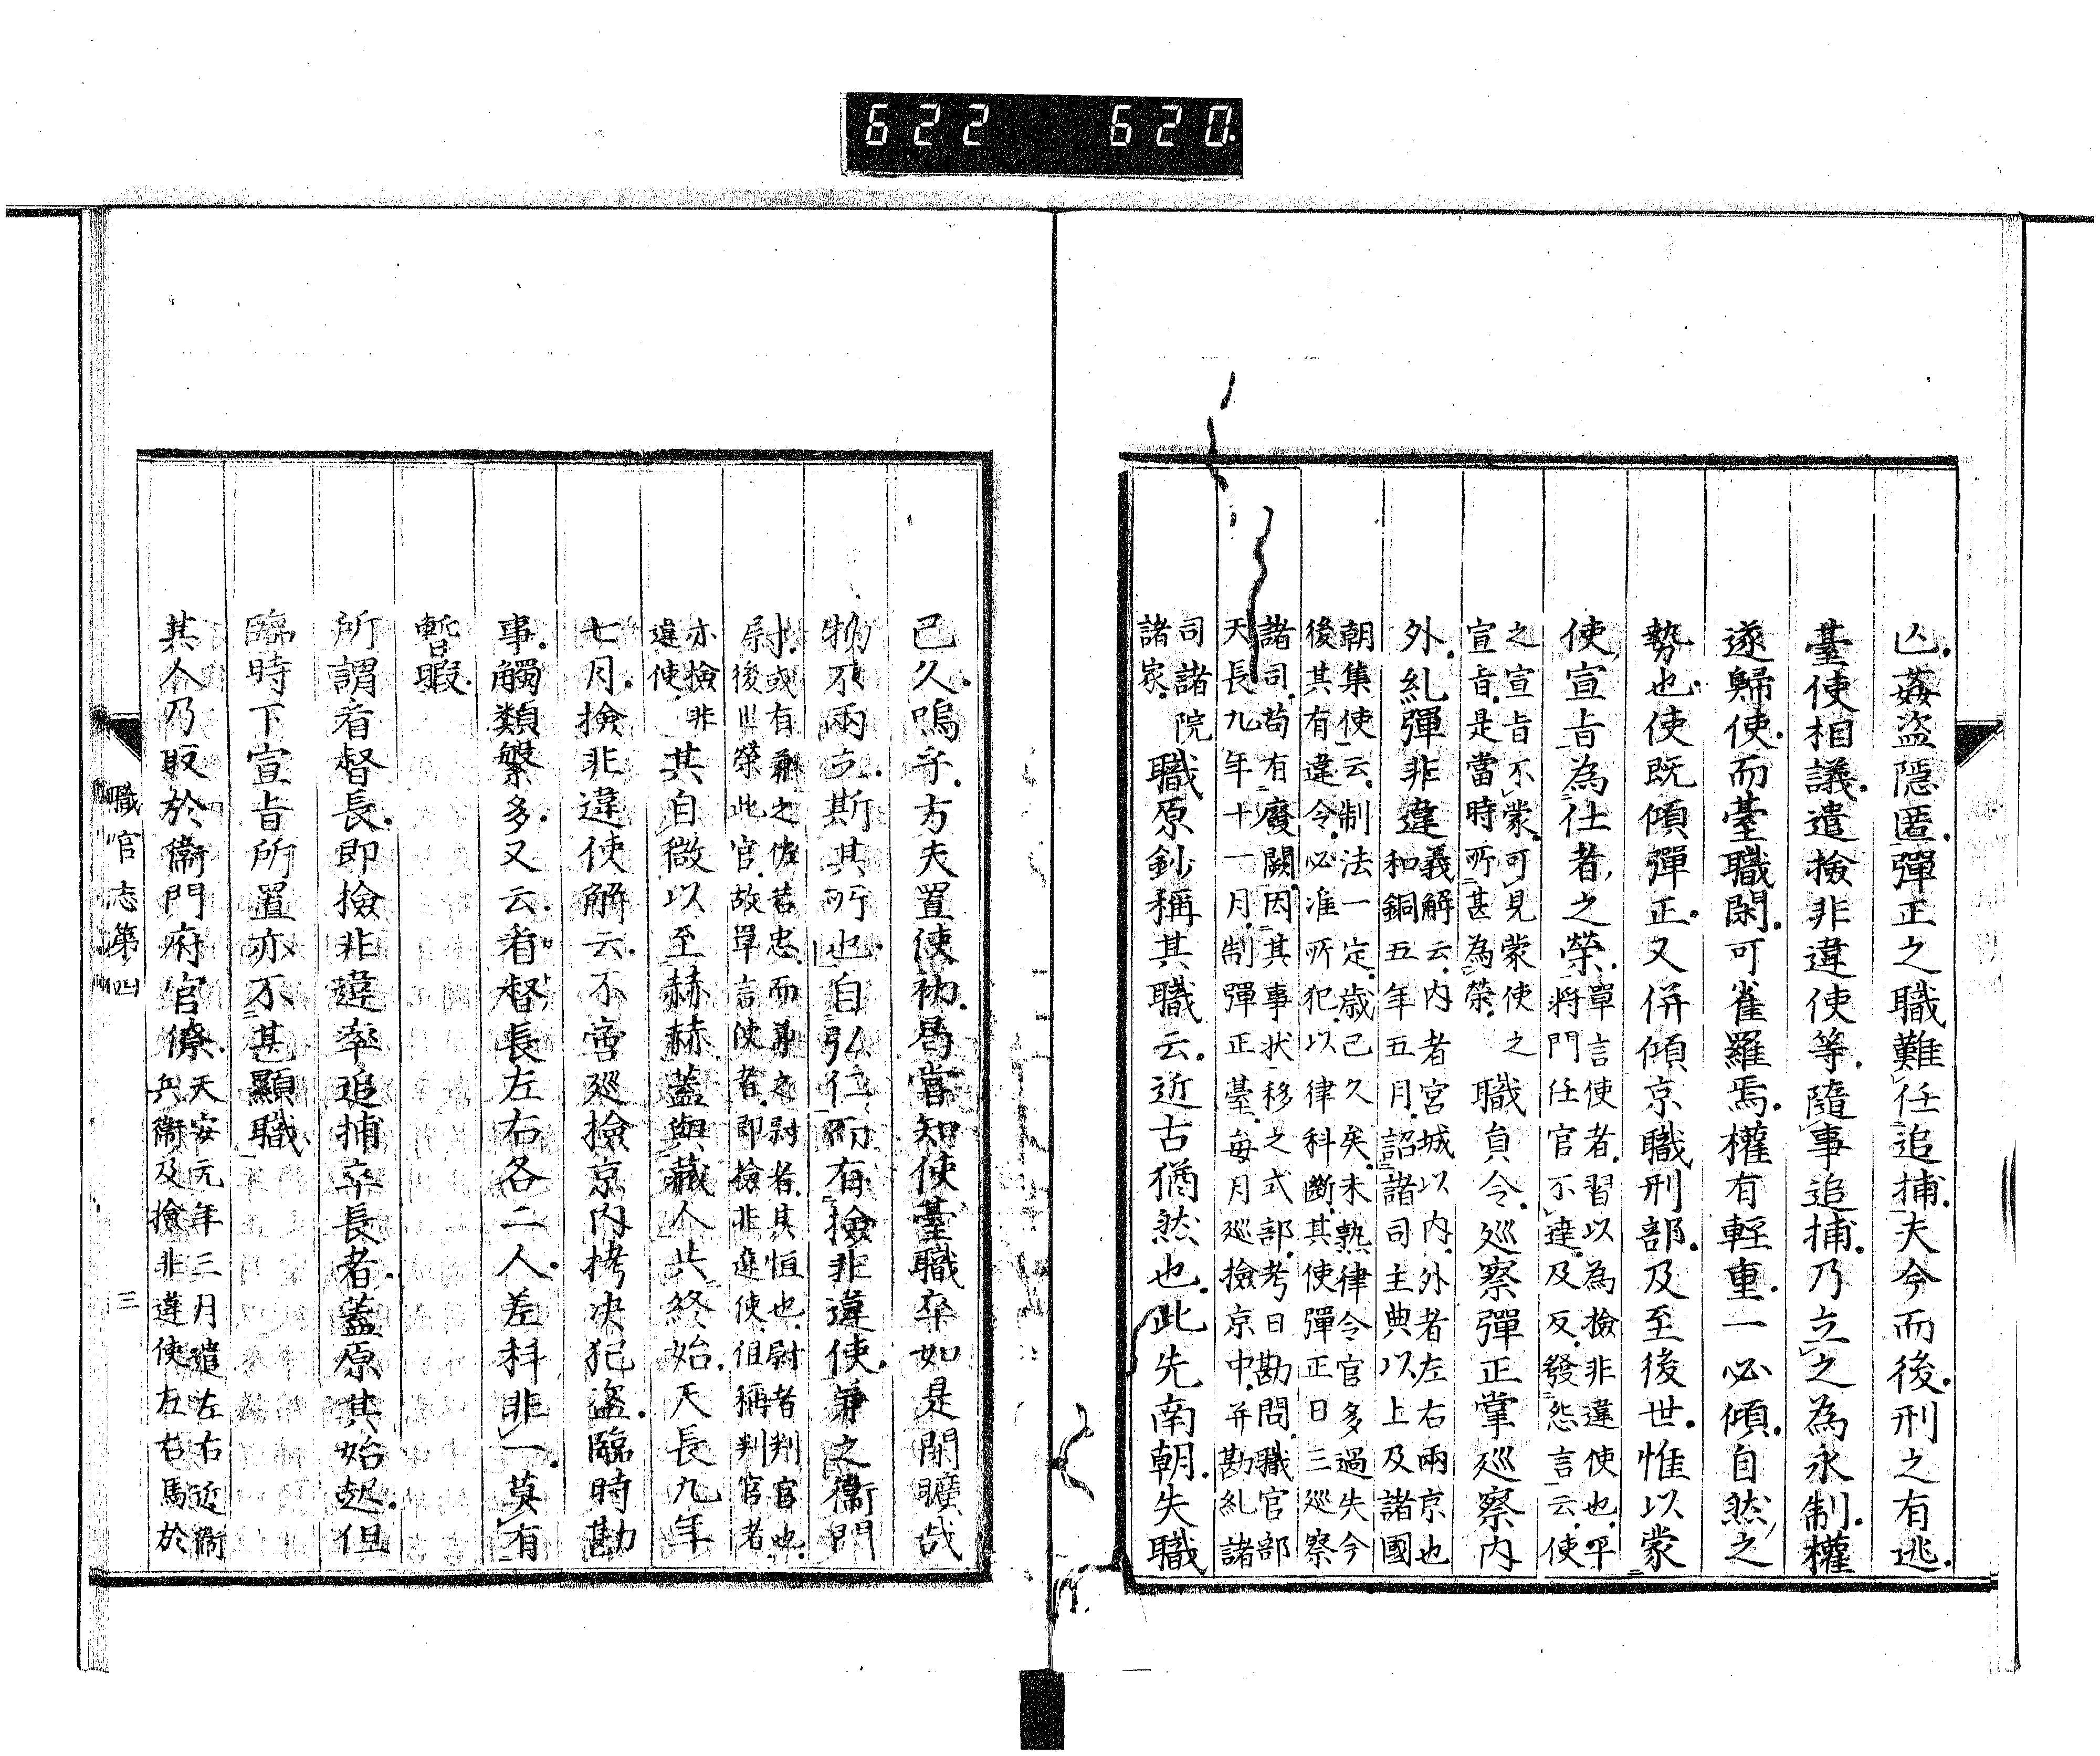 622 620
亾姦盜隱匿彈正之職難任追捕夫今而後刑之有逃
臺使相議遣撿非違使等隨事追捕乃立之為永制權
遂歸使而臺職閑可雀羅焉權有輕重一必傾自然之
勢也使既傾彈正又併傾京職刑部及至後世惟以蒙
使宣旨為仕者之榮
單言使者習以為撿非違使也平
將門任官不達及反發怨言云使
之宣旨不蒙可見蒙使之
宣旨是當時所甚為榮
職員令巡察彈正掌巡察内
外糺彈非違
義解云内者宮城以内外者左右兩京也
和銅五年五月詔諸司主典以上及諸國
朝集使云制法一定歲已久矣未熟律令官多過失今
後其有違令必准所犯以律科斷其使彈正日三巡察
諸司苟有廢闕因其事狀移之式部考日勘問職官部
天長九年十一月制彈正臺每月巡撿京中并勘糺諸
司諸院
諸家
職原鈔稱其職云近古猶然也此先南朝失職
已久嗚乎方夫置使初曷嘗知使臺職卒如是閑曠哉
物不兩立斯其所也自弘仁而有撿非違使兼之衞門
尉
或有兼之佐若忠而兼之尉者其恒也尉者判官也
後世榮此官故單言使者即撿非違使但稱判官者
亦撿非
違使
其自微以至赫赫蓋與藏人共終始天長九年
七月撿非違使解云不啻巡撿京内拷決犯盜臨時勘
事觸類繁多又云看督長左右各二人差科非一莫有
暫暇
所謂看督長即撿非違率追捕卒長者蓋原其始起但
臨時下宣旨所置亦不甚顯職
其人乃取於衞門府官僚
天安元年三月遣左右近衞
兵衞及撿非違使左右馬於
職官志第四
三